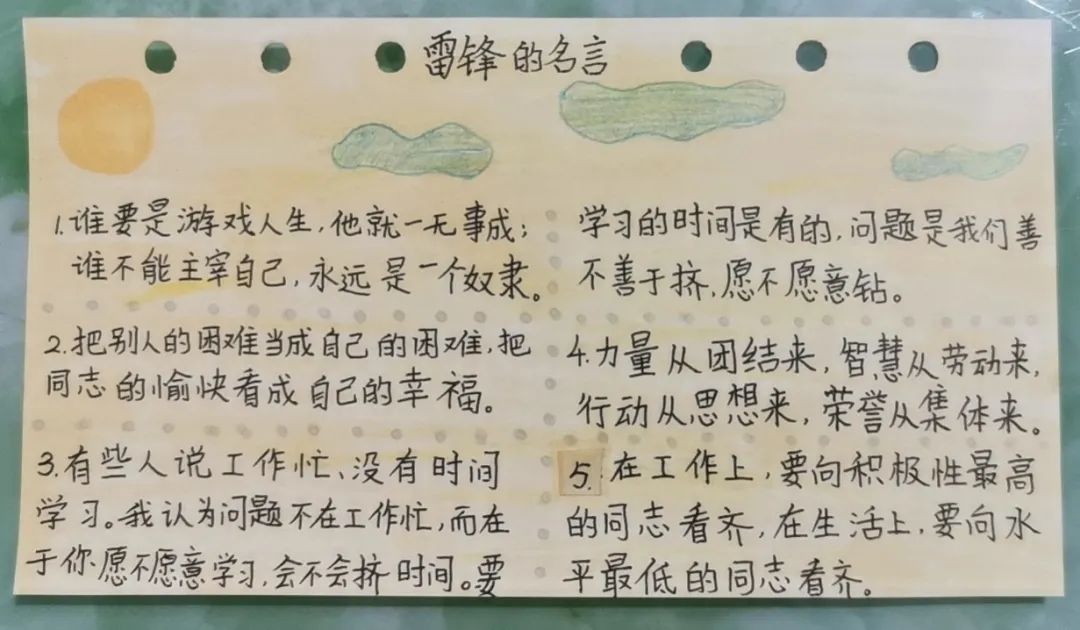 雷锋的名言
1.谁要是游戏人生,他就一无事成;
谁不能主宰自己,永远是一个奴隶。
2.把别人的困难当成自己的困难,把
同志的愉快看成自己的幸福。
3.有些人说工作忙、没有时间
学习。我认为问题不在工作忙,而在
于你愿不愿意学习,会不会挤时间。要
学习的时间是有的,问题是我们善
不善于挤,愿不愿意钻。
4.力量从团结来,智慧从劳动来,
行动从思想来,荣誉从集体来。
5.在工作上,要向积极性最高
的同志看齐,在生活上,要向水
平最低的同志看齐。